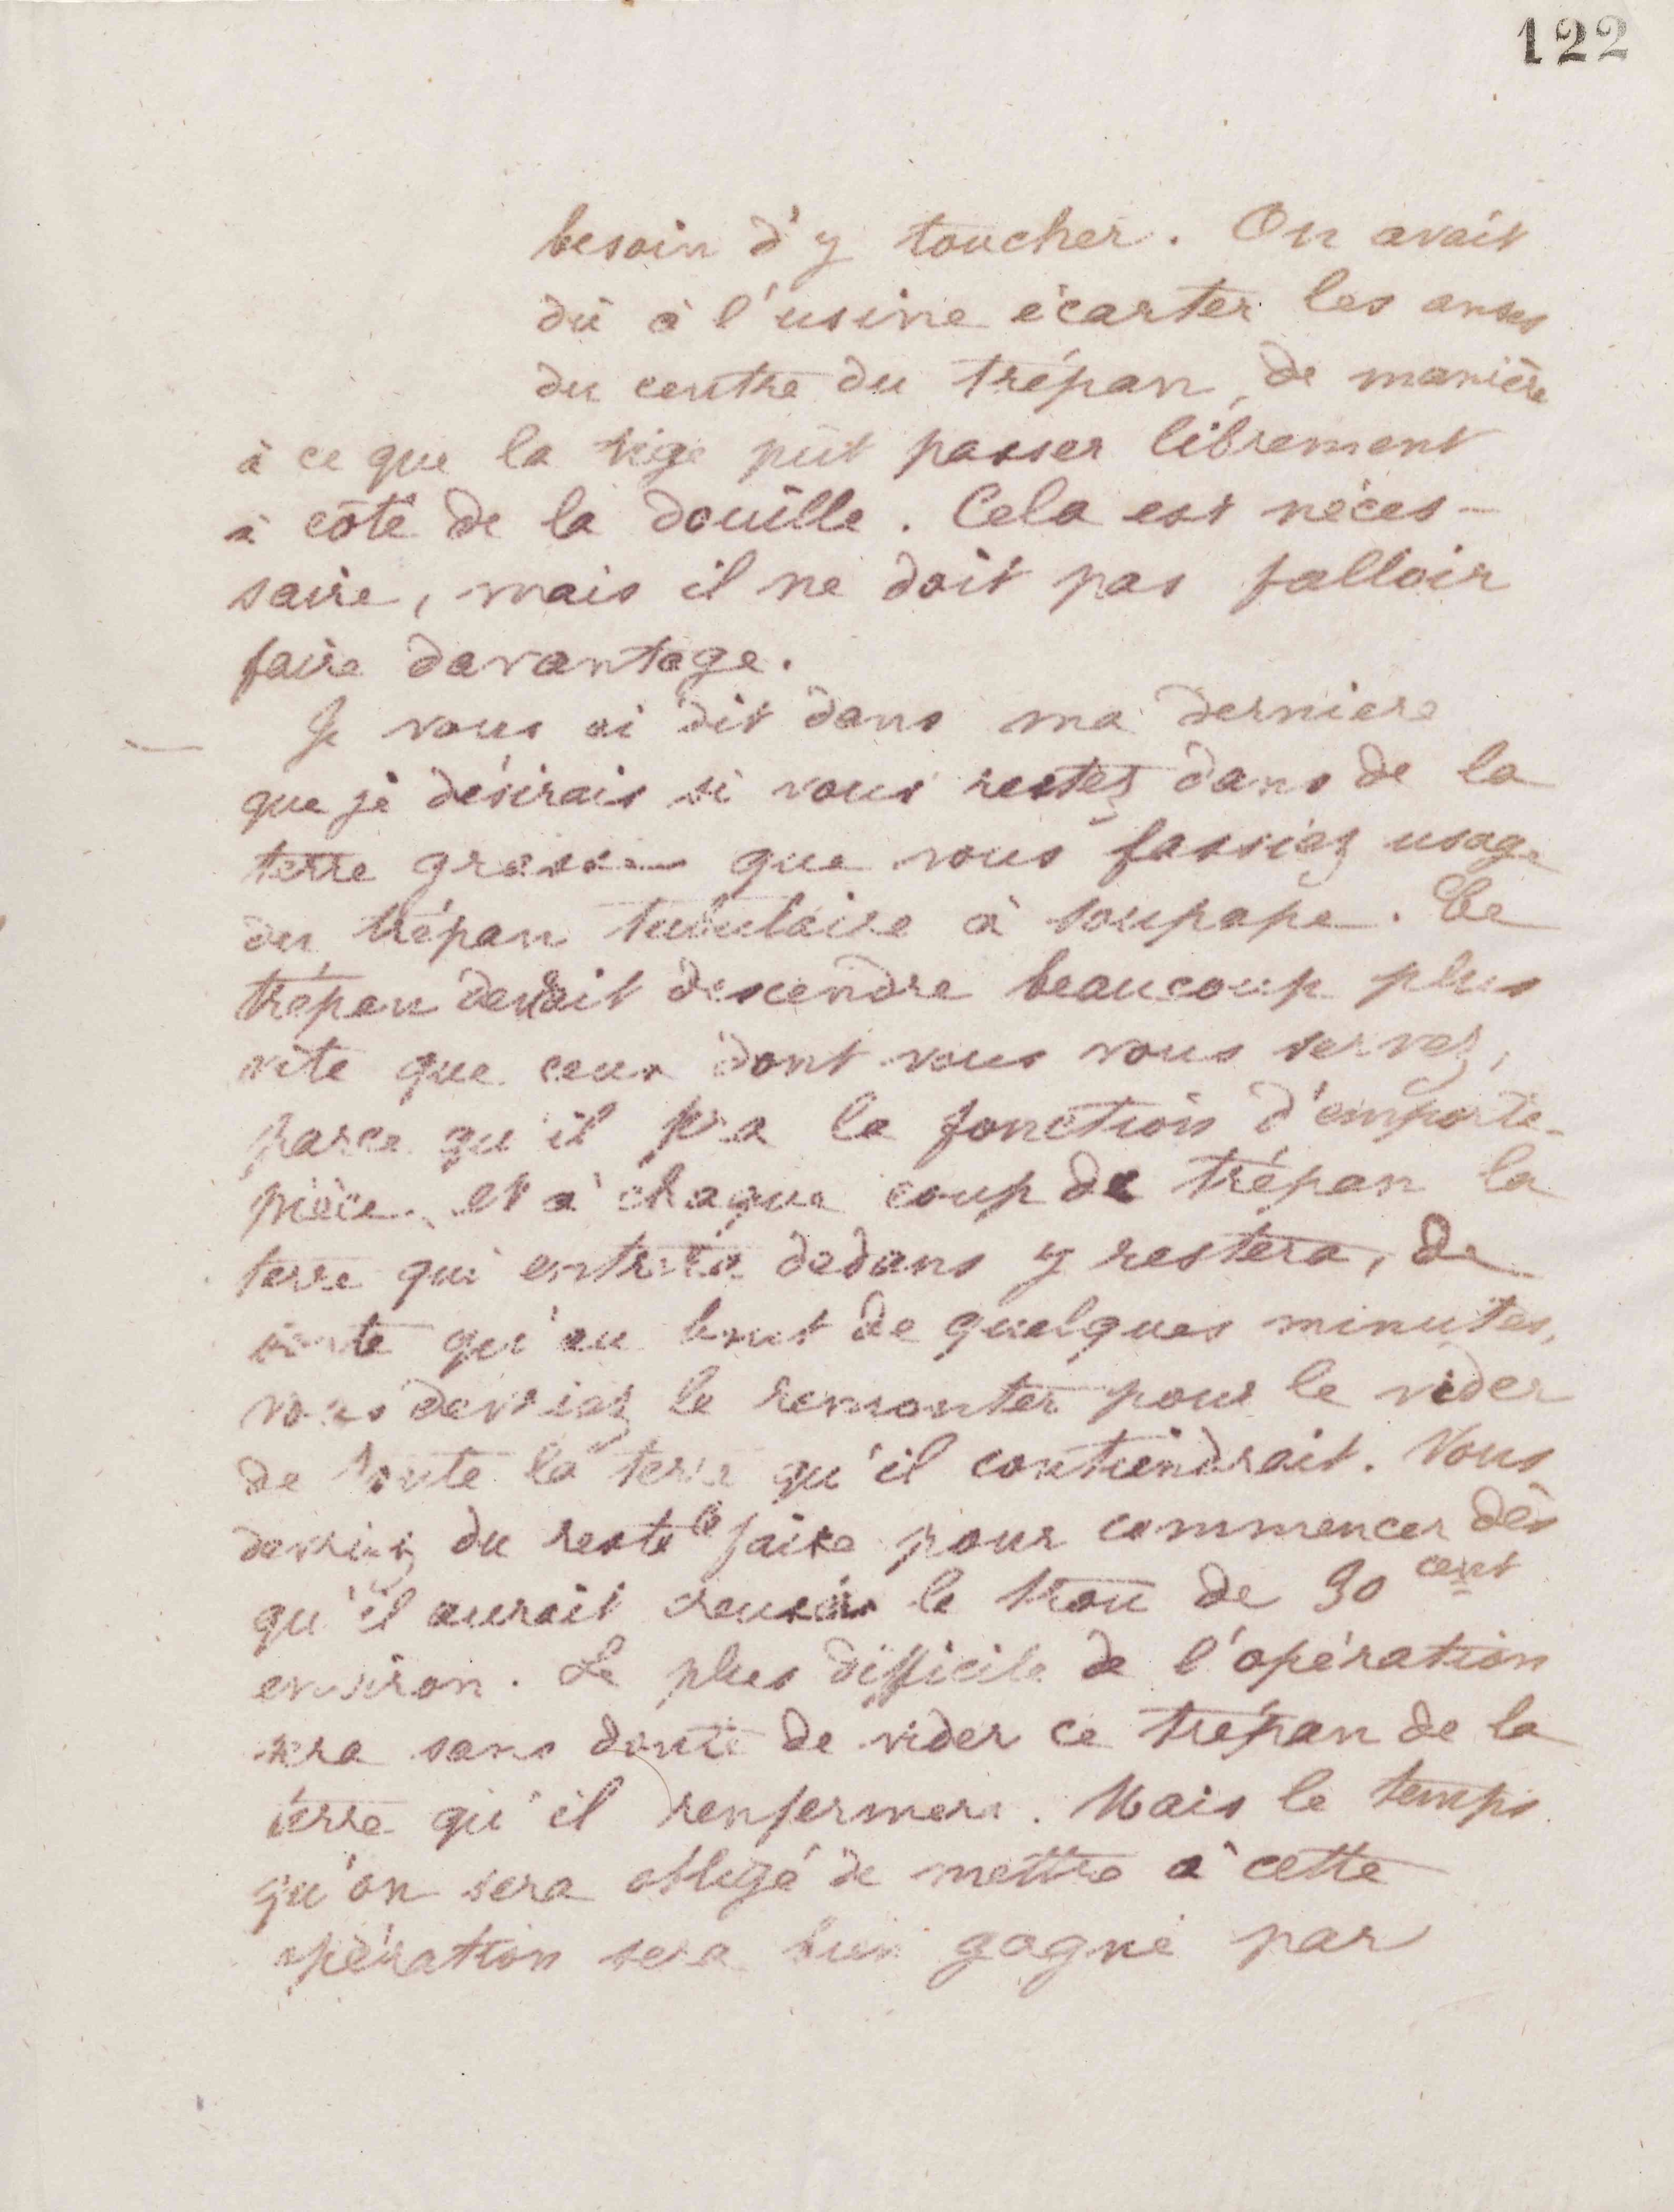 122
besoin d'y toucher. On avait
dû à l'usine écarter les anses
du centre du trépan, de manière
à ce que la tige pût passer librement
à côté de la douille. Cela est néces-
saire, mais il ne doit pas falloir
faire davantage.
Je vous ai dit dans ma derniere
que je désirais si vous restez dans de la
terre grasse que vous fassiez usage
du trépan tubulaire à soupape. Ce
trépan devrait descendre beaucoup plus
vite que ceux dont vous vous servez,
parce qu'il fera la fonction d'emporte-
pièce et à chaque coup de trépan la
terre qui entrera dedans y restera, de
sorte qu'au bout de quelques minutes,
vous devriez le remonter pour le vider
de toute la terre qu'il contiendrait. Vous
devriez du reste le faire pour commencer dès
qu'il aurait creusé le trou de 30 cent
environ. Le plus difficile de l'opération
sera sans doute de vider ce trépan de la
terre qu'il renfermera. Mais le temps
qu'on sera obligé de mettre à cette
opération sera bien gagné par